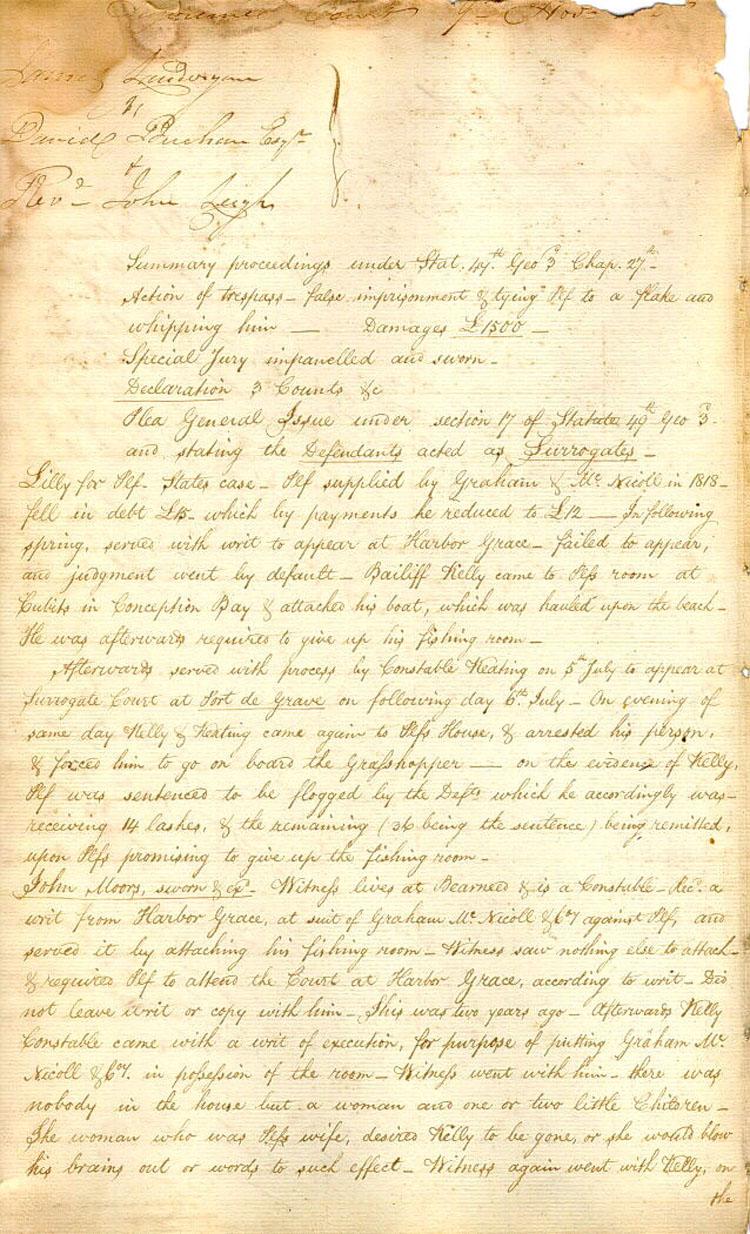 Court 7th Nov
James Lundrigan
vs
David Buchan Esqr
&
Revd John Leigh
Summary proceedings under Stat. 49th Geo 3d Chap. 27th –
Action of trespass – false imprisonment & tying Plf to a flake and
whipping him — Damages £1500 –
Special Jury impanelled and sworn –
Declaration 3 Counts &c
Plea General Issue under section 17 of Statute 49th Geo 3d –
and stating the Defendants acted as Surrogates –
Lilly for Plf – States case – Plf supplied by Graham & Mc Nicoll in 1818 –
fell in debt £15 – which by payments he reduced to £12 — In following
spring, served with writ to appear at Harbor Grace – failed to appear,
and judgment went by default – Bailiff Kelly came to Plfs room at
Cubits in Conception Bay & attached his boat, which was hauled upon the beach –
He was afterwards required to give up his fishing room –
Afterwards served with process by Constable Keating on 5th July to appear at
Surrogate Court at Port de Grave on following day 6th July – On evening of
same day Kelly & Keating came again to Plfs House, & arrested his person,
& forced him to go on board the Grasshopper — on the evidence of Kelly,
Plf was sentenced to be flogged by the Defts which he accordingly was –
receiving 14 lashes, & the remaining (36 being the sentence) being remitted,
upon Plfs promising to give up the fishing room –
John Moors, sworn & exd – Witness lives at Bearneed & is a Constable – Recd a
writ from Harbor Grace, at suit of Graham Mc Nicoll & Coy against Plf, and
served it by attaching his fishing room – Witness saw nothing else to attach –
& required Plf to attend the Court at Harbor Grace, according to writ – Did
not leave writ or copy with him – This was two years ago – Afterwards Kelly
Constable came with a writ of execution, for purpose of putting Graham Mc
Nicoll & Coy. in possession of the room – Witness went with him – there was
nobody in the house but a woman and one or two little Children –
The woman who was Plfs wife, desired Kelly to be gone, or she would blow
his brains out or words to such effect – Witness again went with Kelly, on
the